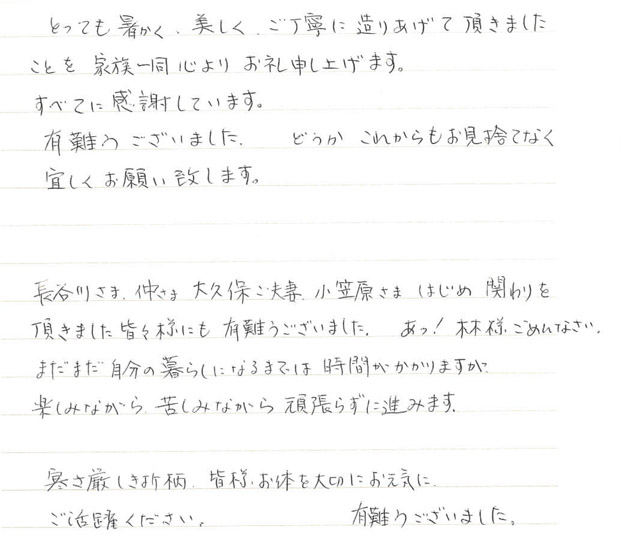 とっても暑かく、美しく、ご丁寧に造りあげて頂きました
ことを 家族一同 心より お礼申し上げます。
すべてに感謝しています。
有難うございました。 どうか これからもお見捨てなく
宜しくお願い致します。
長谷川さま、仲さま 大久保ご夫妻、小笠原さま はじめ 関わりを
頂きました皆々様にも 有難うございました。 あっ! 林様ごめんなさい。
まだまだ自分の暮らしになるまでは 時間がかかりますが
楽しみながら 苦しみながら 頑張らずに進みます。
寒さ厳しき折柄、皆様、お体を大切にお元気に
ご活躍ください。 有難うございました。